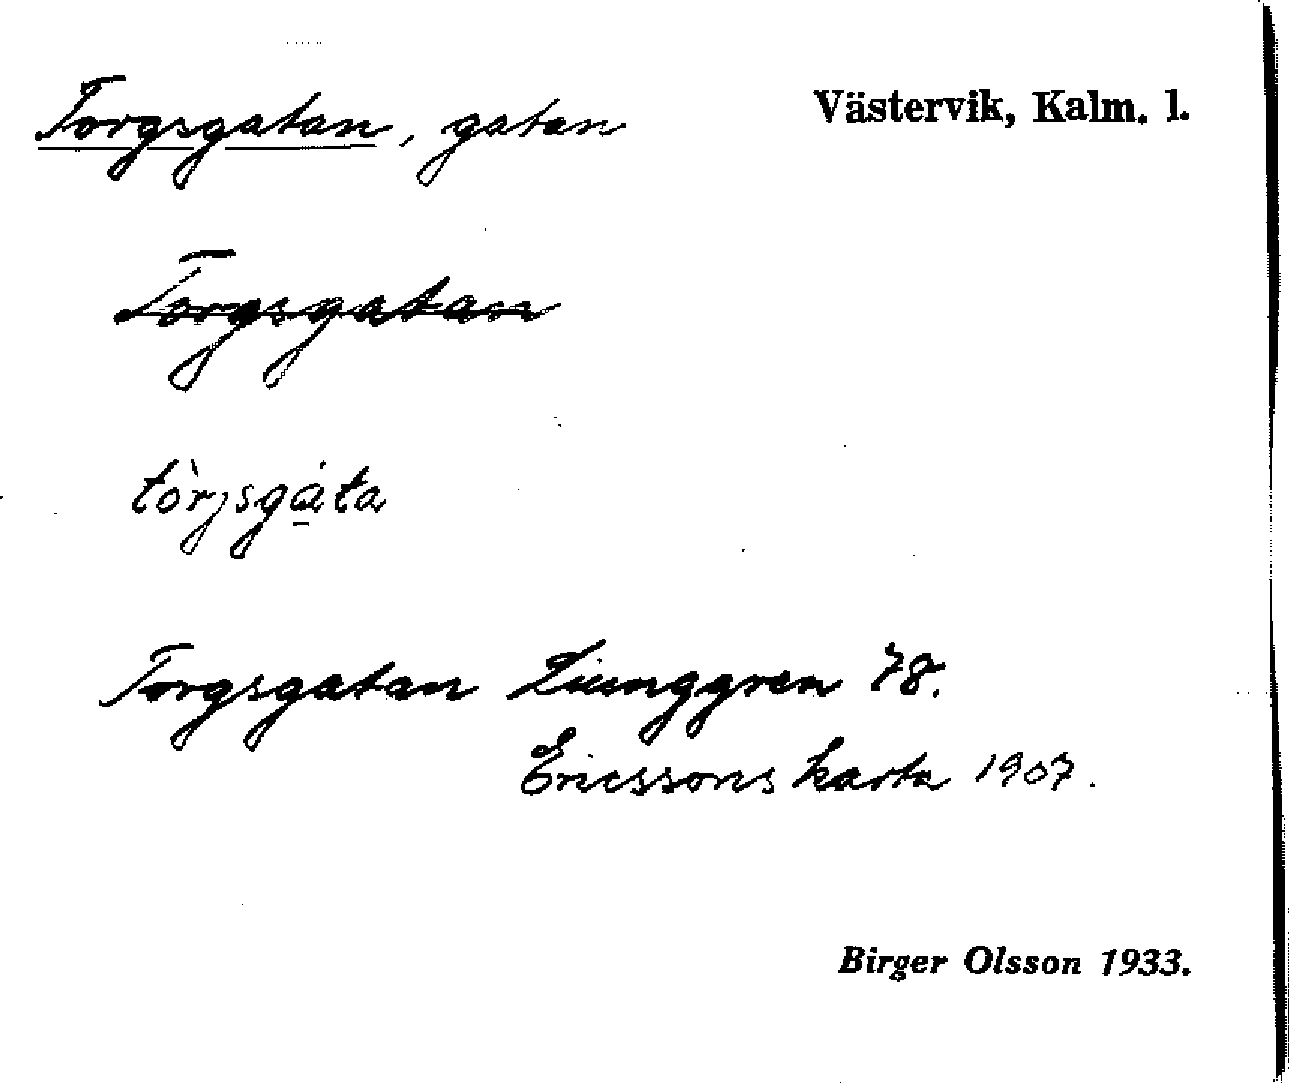 Torgsgatan, gatan Västervik, Kalm. l.
Torgsgatan
tòrjsgáta
Torgsgatan Ljunggren 78.
Ericssons karta 1907.
Birger Olsson 1933.